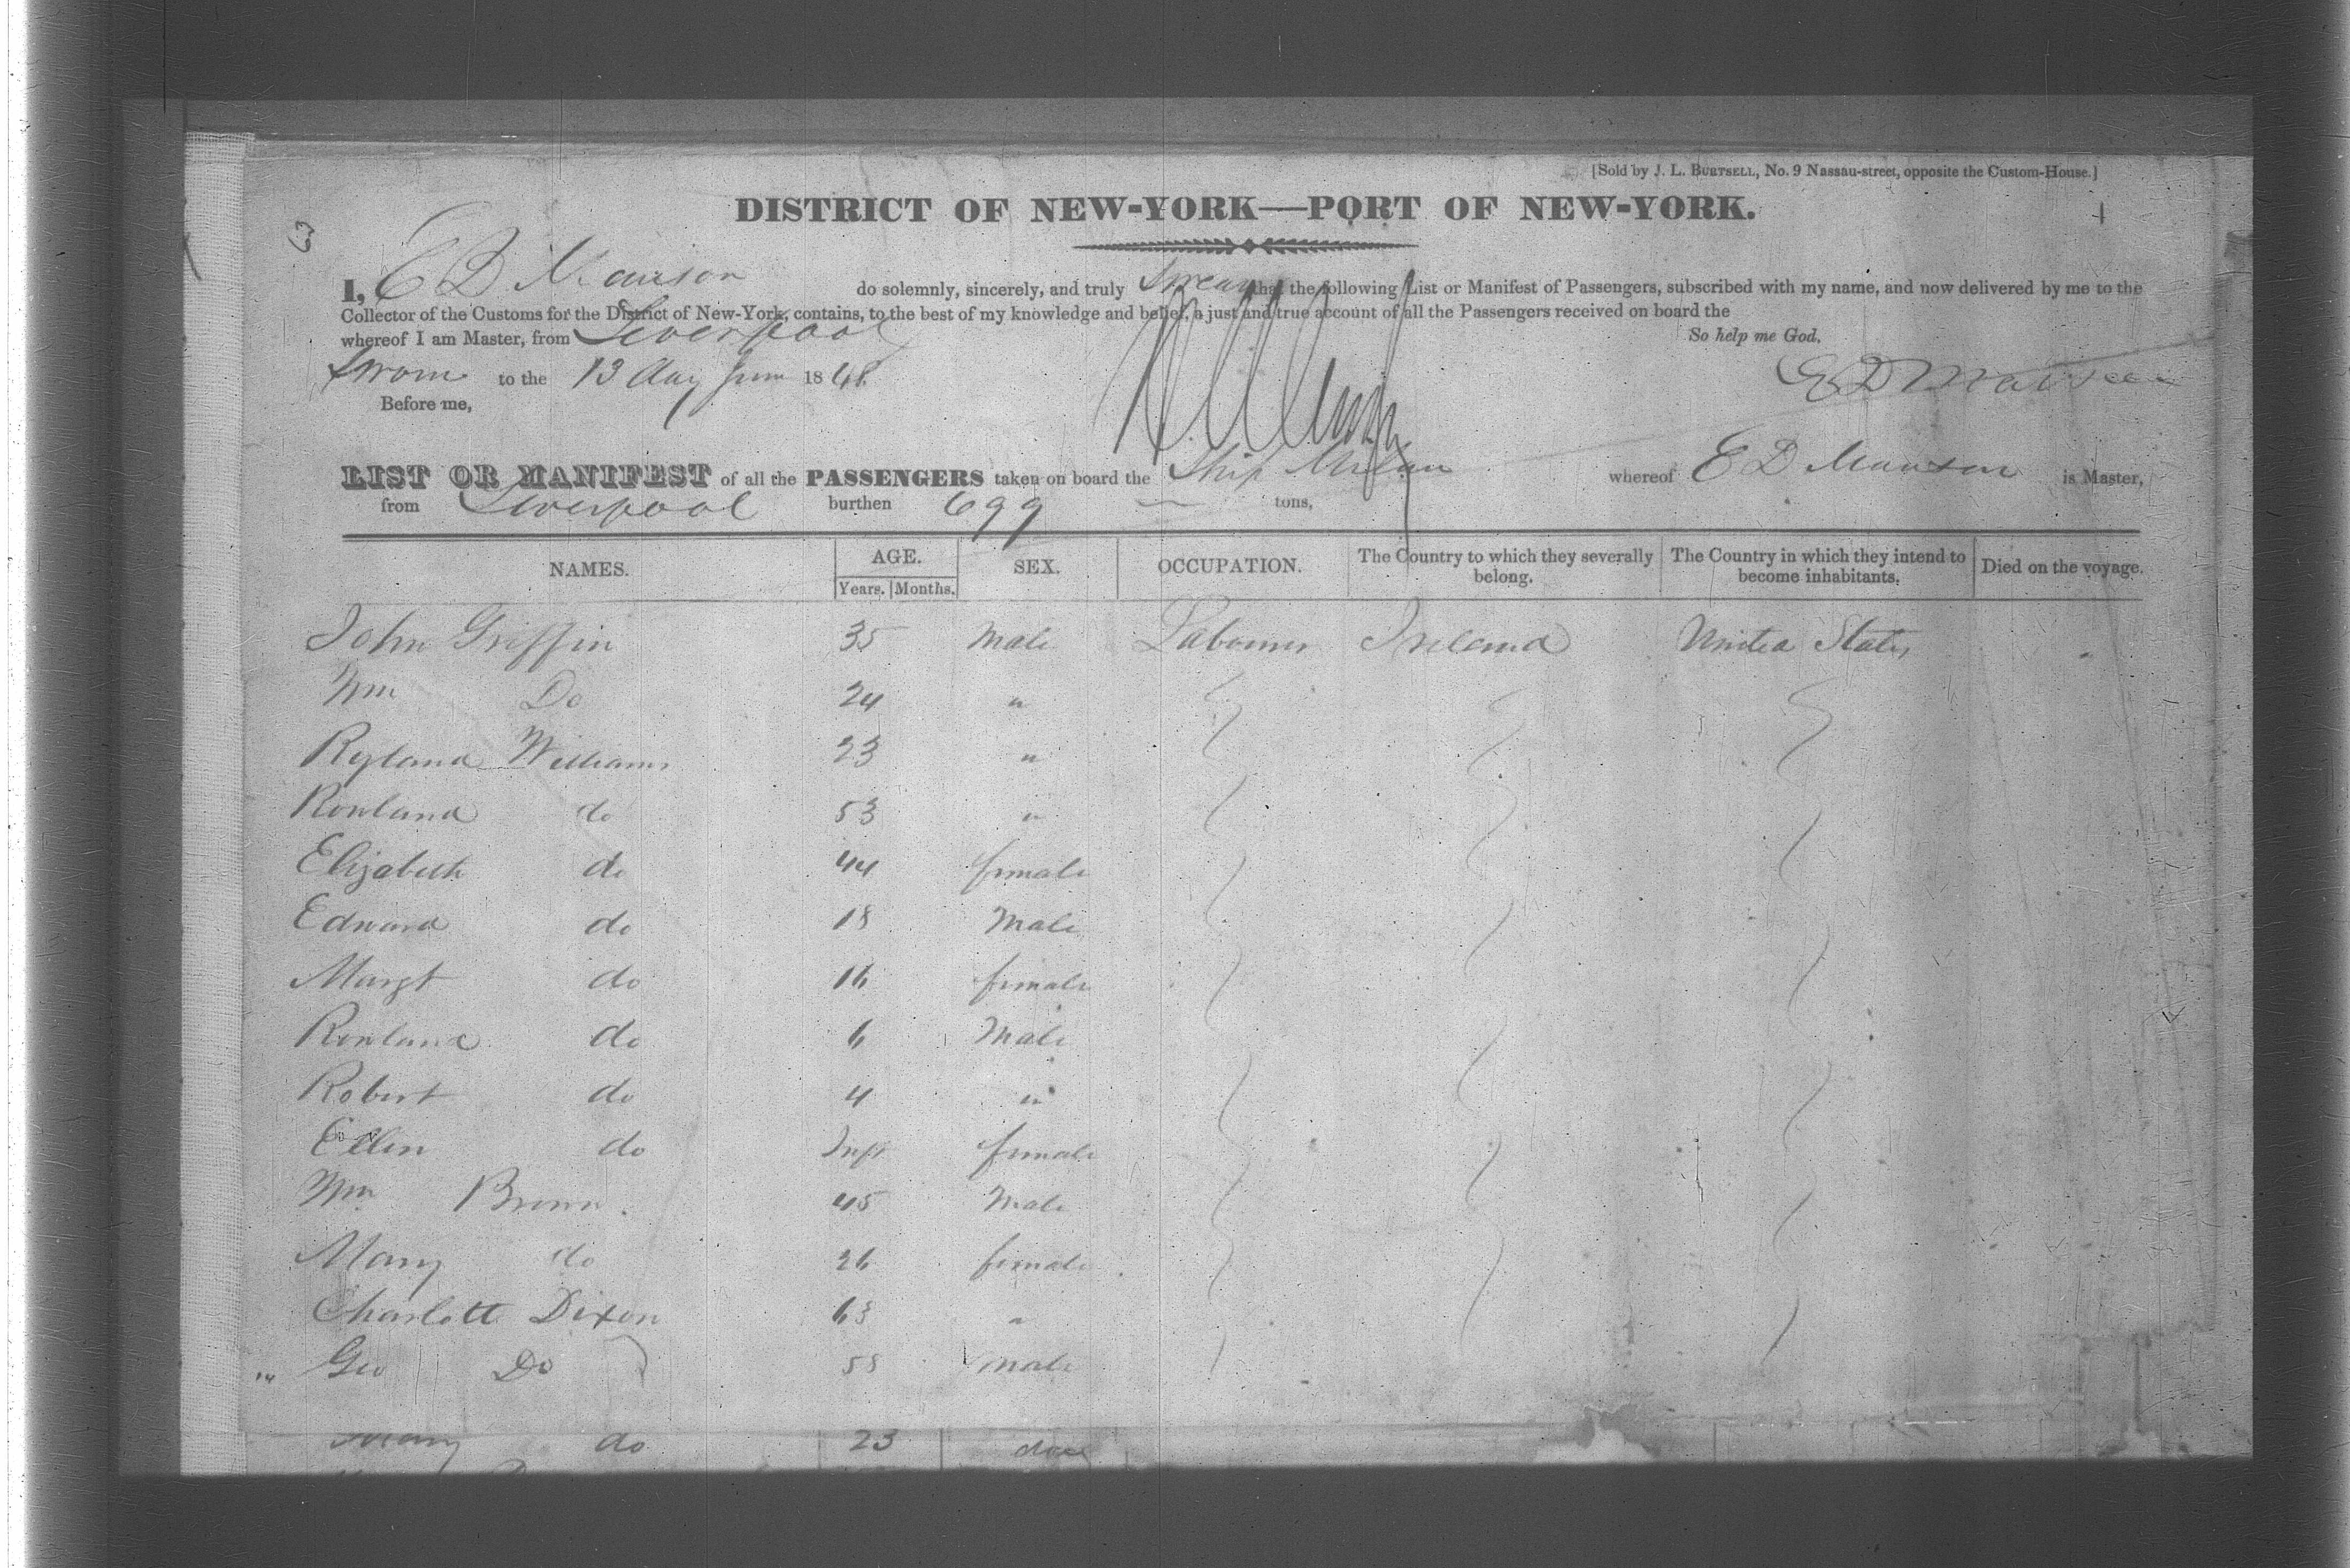 [Sold by J. L. BURTSELL, No. 9 Nassau-street, opposite the Custom-House.]
DISTRICT OF NEW-YORK—PORT OF NEW-YORK.
I, E D Manson do solemnly, sincerely, and truly Swear that the following List or Manifest of Passengers, subscribed with my name, and now delivered by me to the
Collector of the Customs for the District of New-York, contains, to the best of my knowledge and belief, a just and true account of all the Passengers received on board the
whereof I am Master, from Liverpool So help me God.
Sworn to the 13 day June 1848 E D Manson
Before me,
LIST OR MANIFEST of all the PASSENGERS taken on board the Ship Milan whereof E D Manson is Master,
from Liverpool burthen 699 tons,
NAMES. AGE. SEX. OCCUPATION. The Country to which they severally belong. The Country in which they intend to become inhabitants. Died on the voyage.
Years. Months.
John Griffin 35 Male Labourer Ireland United States
Wm Do 24 "
Ryland Williams 23 "
Rowland do 53 "
Elizabeth do 44 female
Edward do 18 Male
Margt do 16 female
Rowland do 6 Male
Robert do 4 "
Ellen do Inft female
Wm Brown. 45 Male
Mary do 26 female
Charlott Dixon 63 "
Geo Do 58 male
Mary do 23